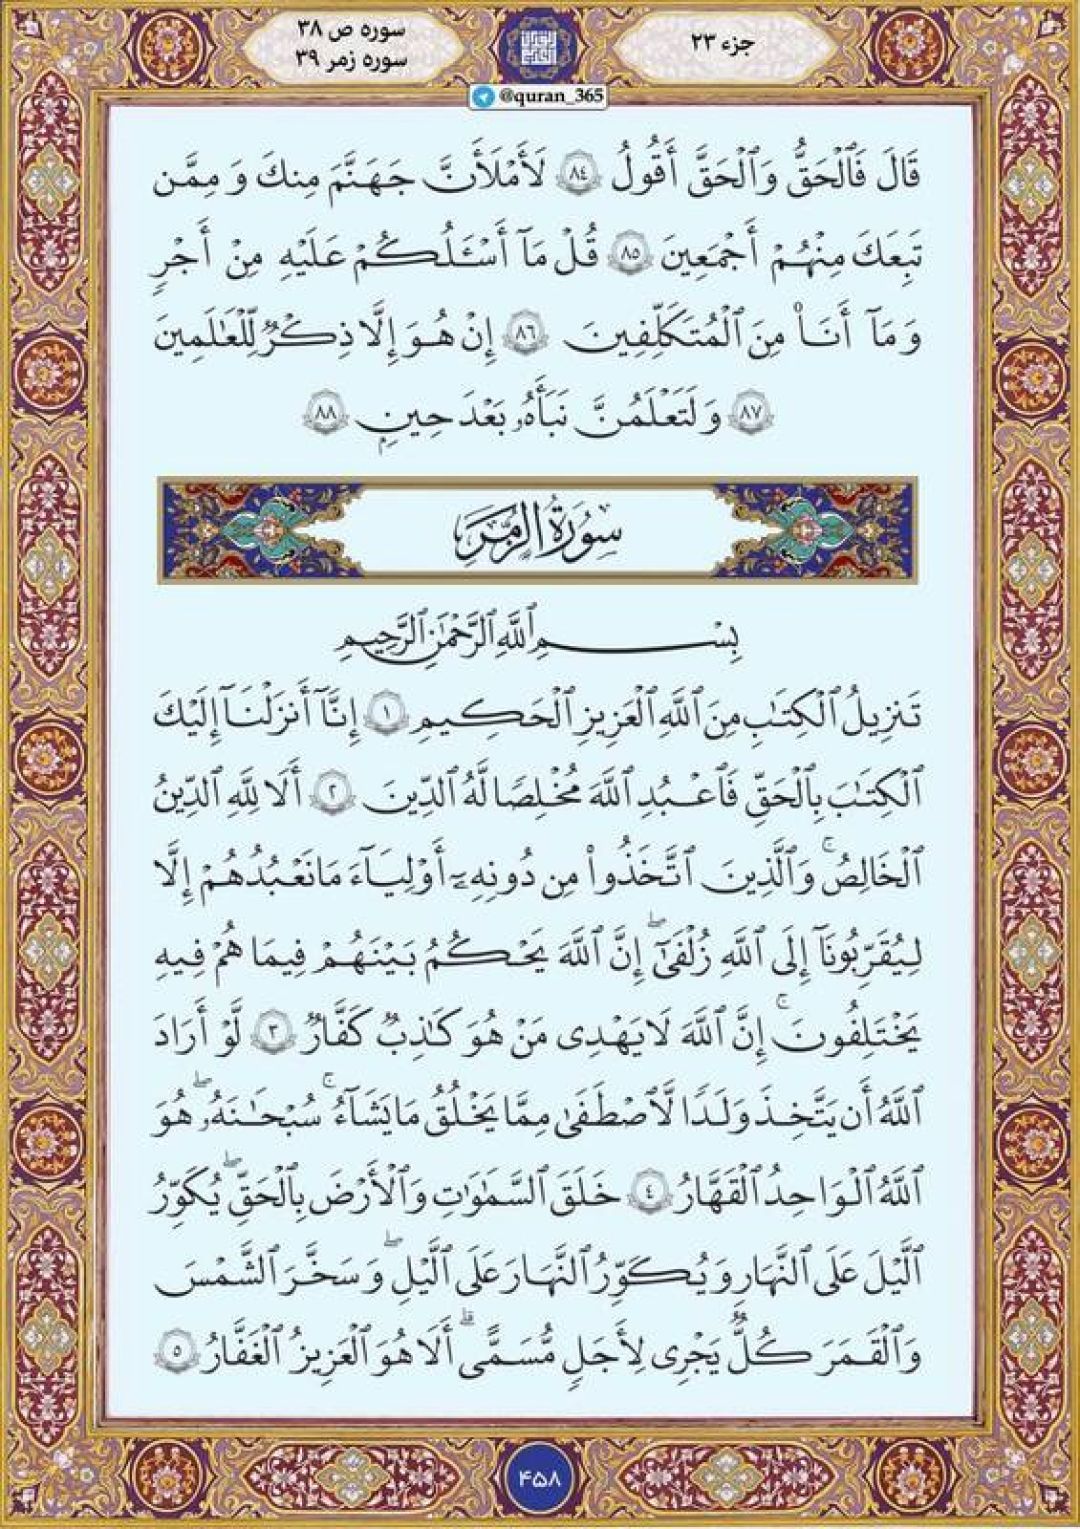 جزء ۲۳
سوره ص ۳۸
سوره زمر ۳۹
@quran_365
قَالَ فَٱلْحَقُّ وَٱلْحَقَّ أَقُولُ ٨٤ لَأَمْلَأَنَّ جَهَنَّمَ مِنكَ وَمِمَّن
تَبِعَكَ مِنْهُمْ أَجْمَعِينَ ٨٥ قُلْ مَآ أَسْـَٔلُكُمْ عَلَيْهِ مِنْ أَجْرٍ
وَمَآ أَنَا۠ مِنَ ٱلْمُتَكَلِّفِينَ ٨٦ إِنْ هُوَ إِلَّا ذِكْرٌ لِّلْعَـٰلَمِينَ
٨٧ وَلَتَعْلَمُنَّ نَبَأَهُۥ بَعْدَ حِينٍۭ ٨٨
سُورَةُ الزُّمَرِ
بِسْمِ ٱللَّهِ ٱلرَّحْمَـٰنِ ٱلرَّحِيمِ
تَنزِيلُ ٱلْكِتَـٰبِ مِنَ ٱللَّهِ ٱلْعَزِيزِ ٱلْحَكِيمِ ١ إِنَّآ أَنزَلْنَآ إِلَيْكَ
ٱلْكِتَـٰبَ بِٱلْحَقِّ فَٱعْبُدِ ٱللَّهَ مُخْلِصًا لَّهُ ٱلدِّينَ ٢ أَلَا لِلَّهِ ٱلدِّينُ
ٱلْخَالِصُ ۚ وَٱلَّذِينَ ٱتَّخَذُوا۟ مِن دُونِهِۦٓ أَوْلِيَآءَ مَا نَعْبُدُهُمْ إِلَّا
لِيُقَرِّبُونَآ إِلَى ٱللَّهِ زُلْفَىٰٓ ۖ إِنَّ ٱللَّهَ يَحْكُمُ بَيْنَهُمْ فِيمَا هُمْ فِيهِ
يَخْتَلِفُونَ ۚ إِنَّ ٱللَّهَ لَا يَهْدِى مَنْ هُوَ كَـٰذِبٌ كَفَّارٌ ٣ لَّوْ أَرَادَ
ٱللَّهُ أَن يَتَّخِذَ وَلَدًا لَّٱصْطَفَىٰ مِمَّا يَخْلُقُ مَا يَشَآءُ ۚ سُبْحَـٰنَهُۥ ۖ هُوَ
ٱللَّهُ ٱلْوَاحِدُ ٱلْقَهَّارُ ٤ خَلَقَ ٱلسَّمَـٰوَٰتِ وَٱلْأَرْضَ بِٱلْحَقِّ ۖ يُكَوِّرُ
ٱلَّيْلَ عَلَى ٱلنَّهَارِ وَيُكَوِّرُ ٱلنَّهَارَ عَلَى ٱلَّيْلِ ۖ وَسَخَّرَ ٱلشَّمْسَ
وَٱلْقَمَرَ كُلٌّ يَجْرِى لِأَجَلٍ مُّسَمًّى ۗ أَلَا هُوَ ٱلْعَزِيزُ ٱلْغَفَّارُ ٥
۴۵۸